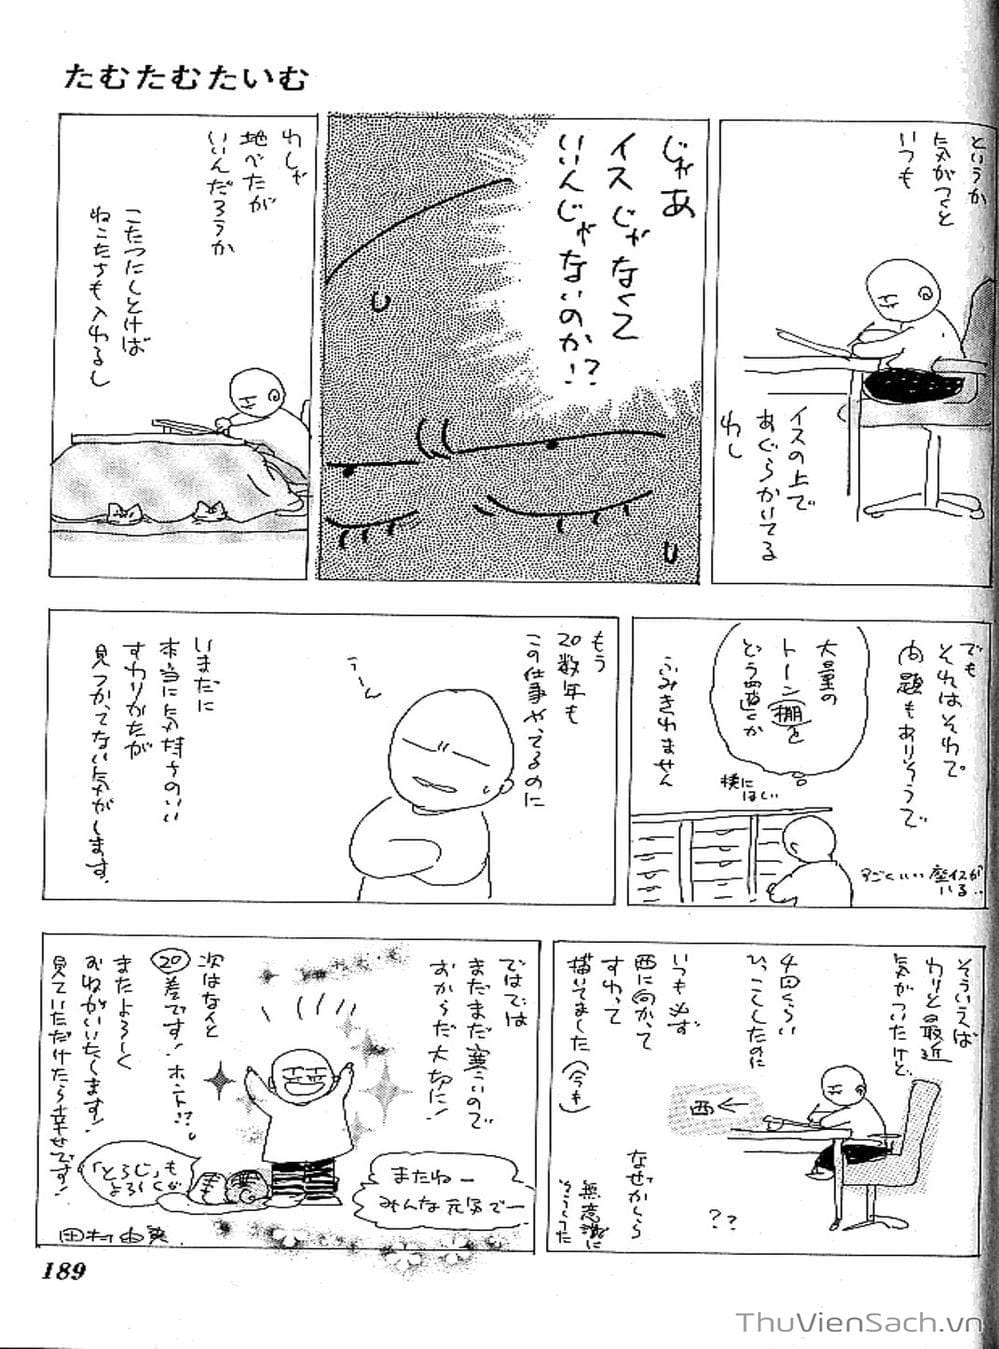 たむたむたいむ
というか
気がつくと
いつも
イスの上で
あぐらかいてる
わし
じゃあ
イスじゃなくて
いいんじゃないのか!?
わしゃ
地べたが
いいんだろうか
こたつにしとけば
ねこたちも入れるし
でも
それはそれで
問題もありそうで
大量の
トーン棚を
どう置くか
ふみきれません
横に
ほしい
すごくいい座イスが
いる‥
もう
20数年も
この仕事やってるのに
うーん
いまだに
本当に気持ちのいい
すわりかたが
見つかってない気がします。
そういえば
わりと最近
気がついたけど
4回くらい
ひっこしたのに
いつも必ず
西に向かって
すわって
描いてました(今も)
西←
なぜかしら
??
無意識に
そうしてた
ではでは
まだまだ寒いので
おからだ大切に!
次はなんと
20巻です!ホント!?
またよろしく
おねがいいたします!
見ていただけたら幸せです!
「とろじ」も
よろしくな
またねー
みんな元気でー
田村由美
189
ThuVienSach.vn